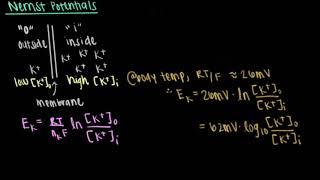 Nernst Potentials
"o" "i"
outside inside
K⁺ K⁺ K⁺ K⁺
K⁺ K⁺ K⁺
low [K⁺]ₒ high [K⁺]ᵢ
membrane
E_K = RT/n_KF ln [K⁺]ₒ/[K⁺]ᵢ
@body temp, RT/F ≈ 26mV
∴ E_K = 26mV · ln [K⁺]ₒ/[K⁺]ᵢ
= 62mV · log₁₀ [K⁺]ₒ/[K⁺]ᵢ